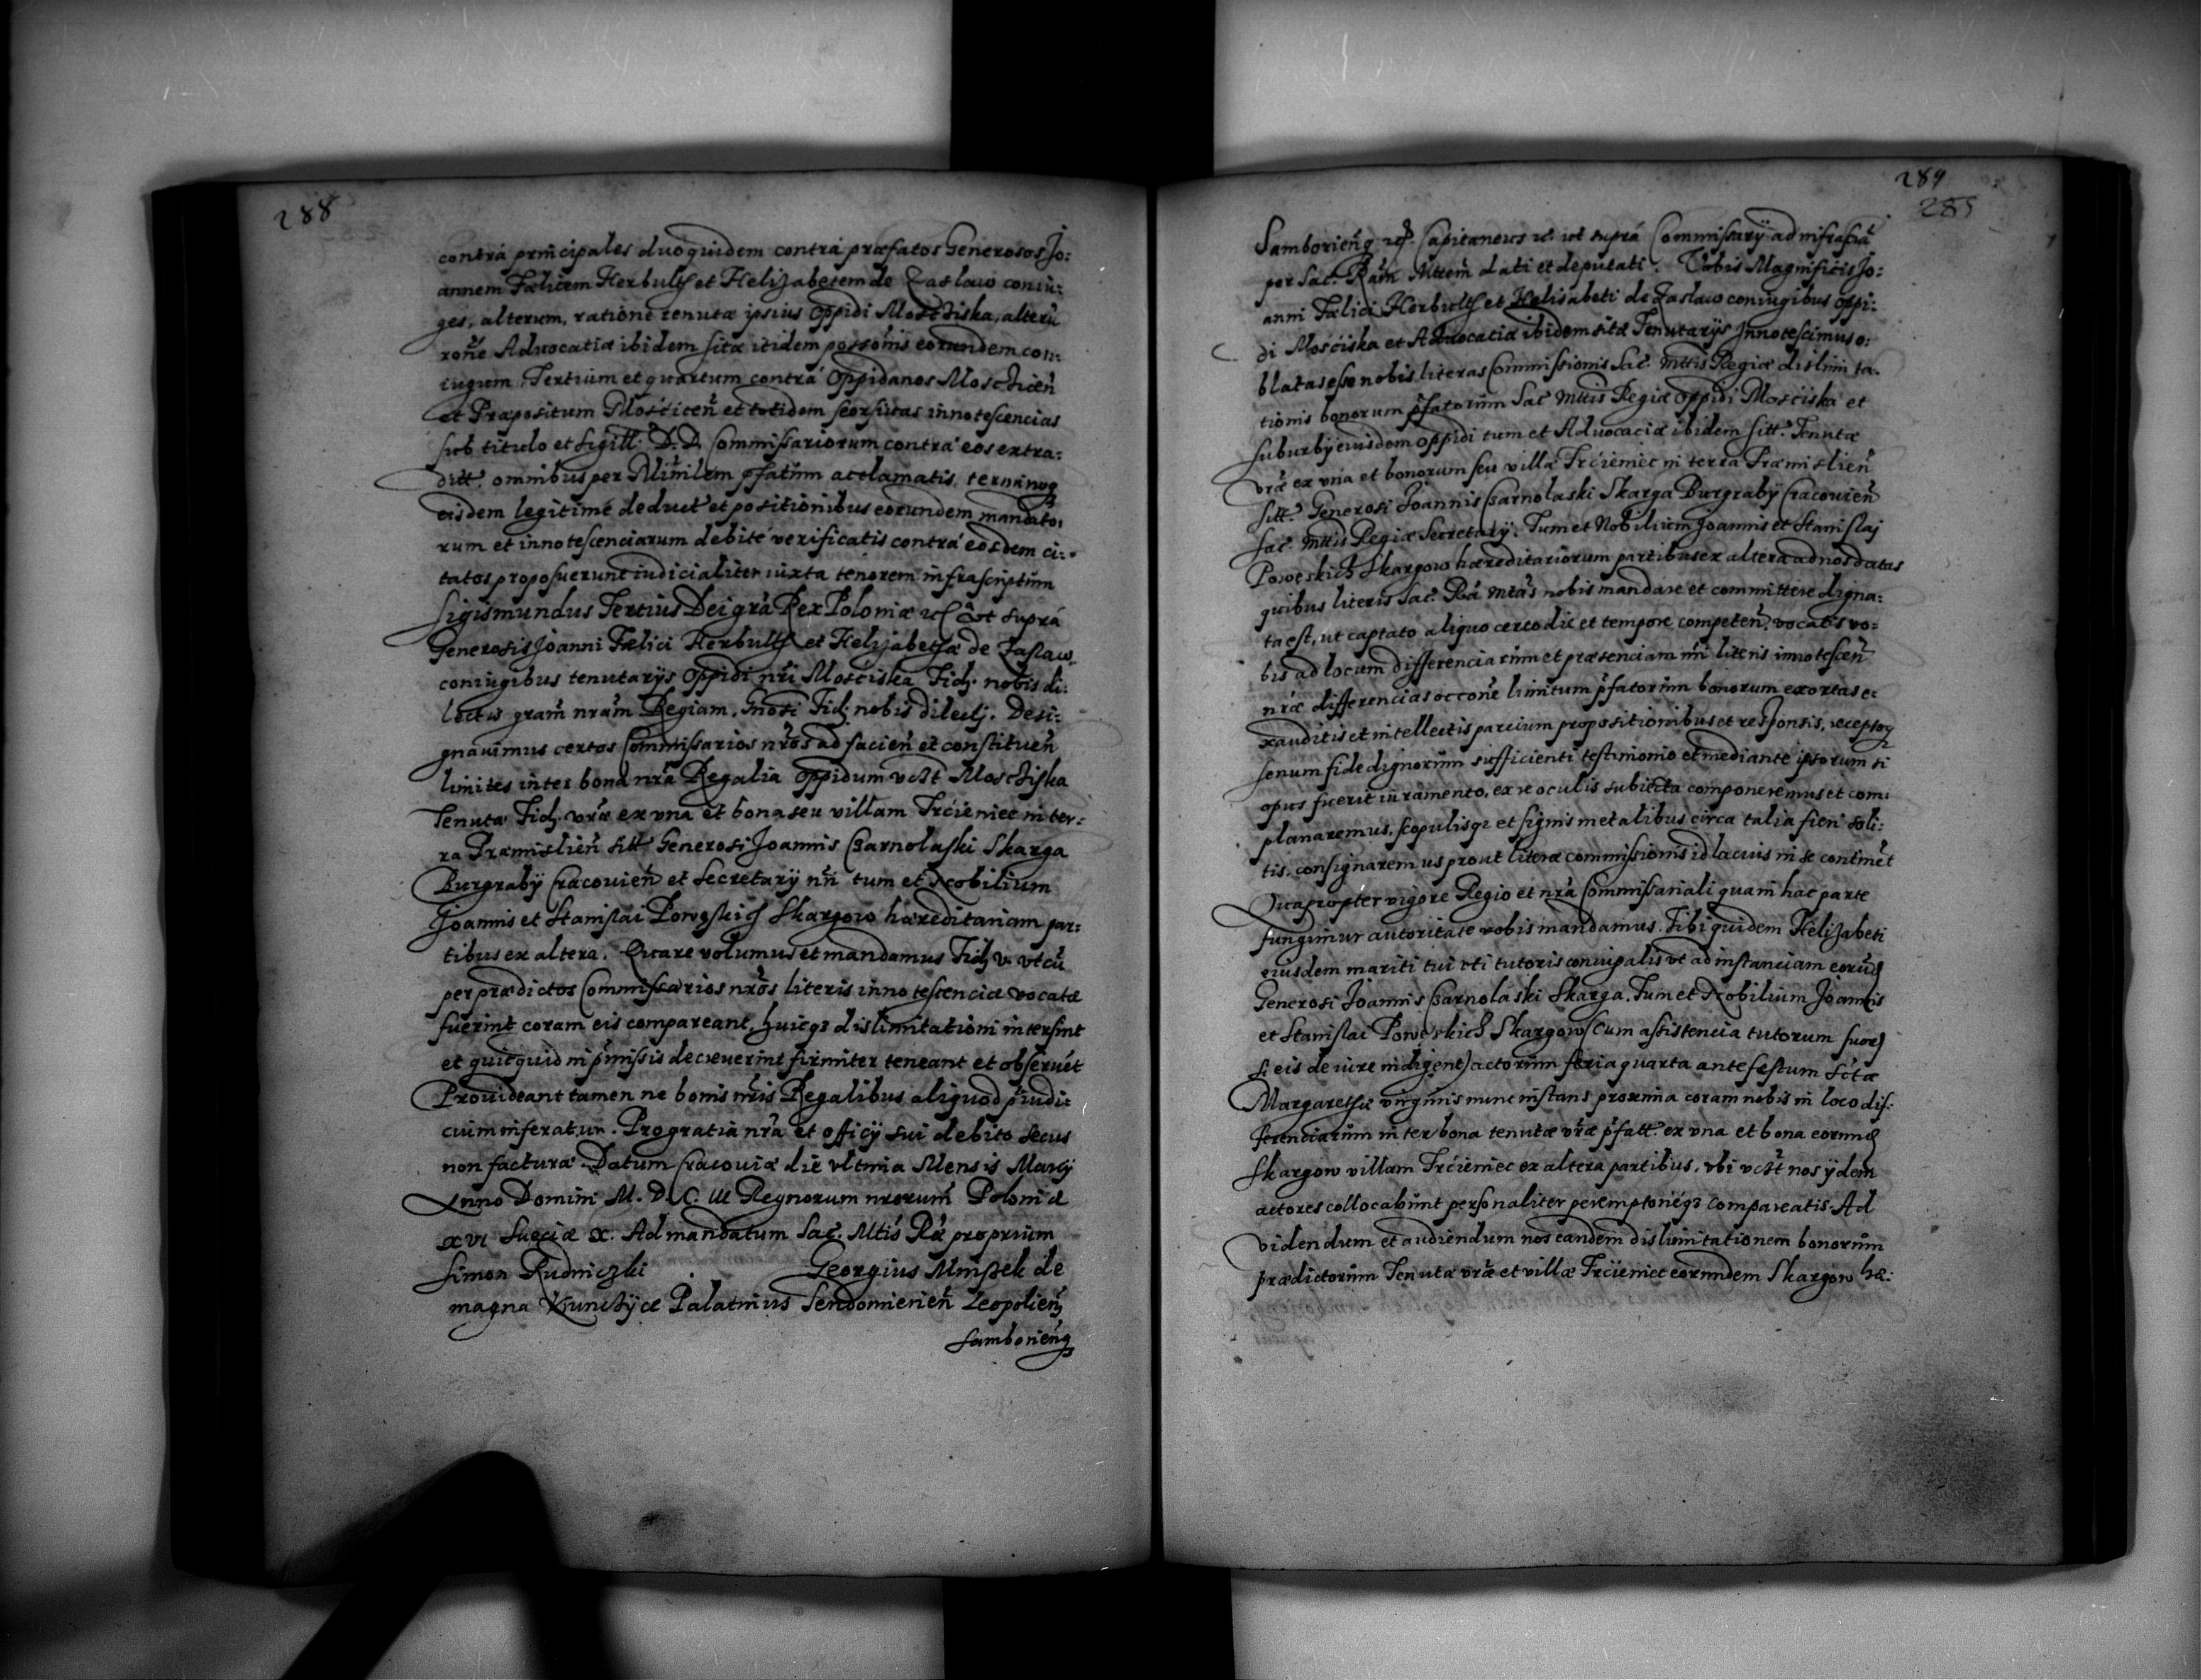 288
contra principales duo quidem contra præfatos Generosos Jo:
annem Fælicem Herbulth et Helizabetem de Zaslaw coniu:
ges, alterum, ratione tenutæ ipsius Oppidi Mosciska, alterũ
rone Advocatiæ ibidem sitæ itidem possonis eorundem con:
iugum Tertium et quartum contra Oppidanos Moscicen
et Præpositum Moscicen et totidem seorsivas innotescencias
sub titulo et sigill. D. D. Commissariorum contra eos extra:
ditt. omnibus per Ministem pfatum acclamatis, terminoq
eisdem legitimé deduct et positionibus eorundem mandato,
rum et innotescenciarum debité verificatis contra eosdem ci:
tatos proposuerunt iudicialiter iuxta tenorem infrascriptum
Sigismundus Tertius Dei gra Rex Poloniæ ut supra
Generosis Joanni Fælici Herbulth et Helizabethæ de Zaslaw
coniugibus tenutarijs Oppidi nri Mosciska Fid. nobis di:
lectis gram nram Regiam. Gnosi Fid. nobis dilecti. Desi:
gnavimus certos Commissarios nros ad facien et constituen
limites inter bona nra Regalia Oppidum vcзt Mosciska
Tenutæ Fid. vræ ex una et bona seu villam Trcieniec in ter:
ra Præmislien sitt Generosi Joannis Czarnolaski Skarga
Burgrabÿ Cracovien et Secretarÿ nri tum et Nobilium
Joannis et Stanislai Powęskich Skargow hæreditariam par:
tibus ex altera. Quare volumus et mandamus Fid. v. ut cũ
per prædictos Commissarios nros literis innotescenciæ vocatæ
fuerint coram eis compareant, huicq dislimitationi intersint
et quicquid in pmissis decreverint firmiter teneant et observẽt
Provideant tamen ne bonis nris Regalibus aliquod piudi:
cium inferatur. Pro gratia nra et officÿ sui debito secus
non facturæ. Datum Cracoviæ die ultima Mensis Marcÿ
Anno Domini M. D. C. III Regnorum nrorum Poloniæ
XVI Sueciæ X. Ad mandatum Sac. Mtis Ræ proprium
Simon Rudniczki Georgius Mniszek de
magna Kunczÿcæ Palatinus Sendomirien Leopolien,
Samborienq
289
285
Samborienq Capitaneus ut supra Commissarÿ ad infrascra
per Sac. Ram Mttem dati et deputati. Vobis Magnificis Jo:
anni Fælici Herbulth et Helisabeti de Zaslaw coniugibus Oppi:
di Mosciska et Advocatiæ ibidem sitæ Tenutarÿs Innotescimus o:
blatas esse nobis literas Commissionis Sac. Mttis Regiæ dislimita:
tionis bonorum pfatorum Sac Mttis Regiæ Oppidi Mosciska et
suburbÿ eiusdem Oppidi tum et Advocaciæ ibidem sitt. Tenutæ
vræ ex una et bonorum seu villæ Trcieniec in terra Præmislien
sitt. Generosi Joannis Czarnolaski Skarga Burgrabÿ Cracovien
Sac. Mttis Regiæ Secretarÿ, Tum et Nobilium Joannis et Stanislaj
Powęskich Skargow hæreditariorum partibus ex altera ad nos datas
quibus literis Sac. Ra Mtas nobis mandare et committere digna:
ta est, ut captato aliquo certo die et tempore competen. vocatis vo:
bis ad locum differenciarum et præsenciam nri literis innotescen
nræ differencias occone limitum pfatorum bonorum exortas e:
xauditis et intellectis parcium propositionibus et responsis, receptoq
senum fide dignorum sufficienti testimonio et mediante ipsorum si
opus fuerit iuramento, ex re oculis subiecta componeremus et com:
planaremus, scopulisq et signis metalibus circa talia fieri soli:
tis, consignaremus prout literæ commissionis id lacius in se continẽt
Quapropter vigore Regio et nra Commissariali quam hac parte
fungimur autoritate vobis mandamus. Tibi quidem Helizabeti
eiusdem mariti tui uti tutoris coniugalis ut ad instanciam eorund
Generosi Joannis Czarnolaski Skarga, Tum et Nobilium Joannis
et Stanislai Powęskich Skargow (Cum assistencia tutorum suor
si eis de iure indigent) actorum feria quarta ante festum Sctæ
Margarethæ virginis nunc instans proxima coram nobis in loco dif:
ferenciarum inter bona tenutæ vræ pfatt. ex una et bona eorund
Skargow villam Trcieniec ex altera partibus, ubi vcзt nos ÿdem
actores collocabunt personaliter peremptorieq compareatis. Ad
videndum et audiendum nos eandem dislimitationem bonorum
prædictorum Tenutæ vræ et villæ Trcieniec eorundem Skargow hæ: